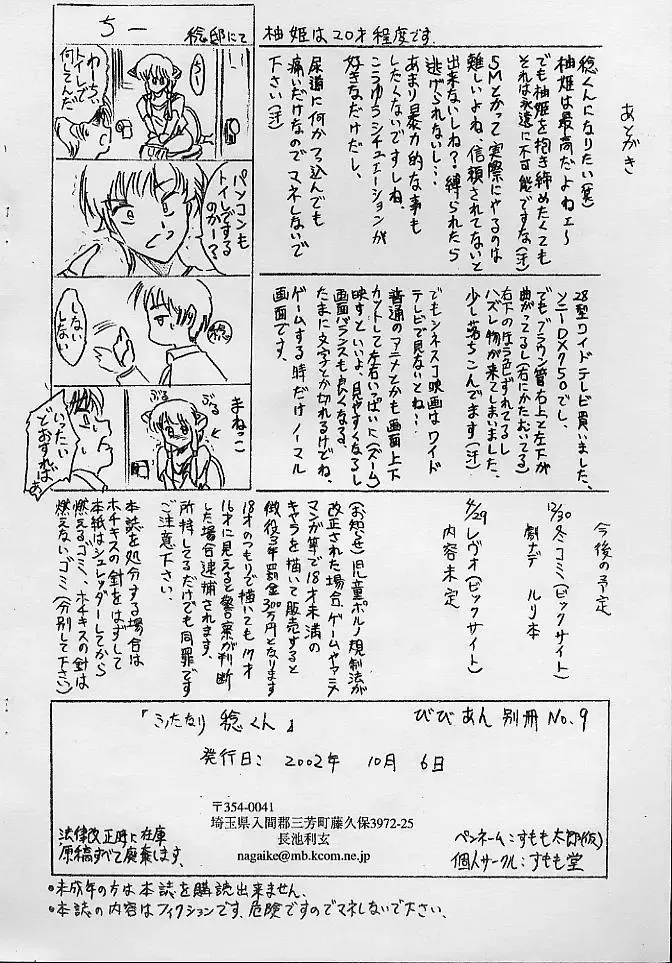 あとがき
柚姫は20才程度です.
稔邸にて
稔くんになりたい(笑)
柚姫は最高だよねェ〜
でも柚姫を抱き締めたくても
それは永遠に不可能ですな(汗)
SMとかって実際にやるのは
難しいよね、信頼されてないと
出来ないしね?縛られたら
逃げられないし…
あまり暴力的な事も
したくないですしね、
こうゆうシチュエーションが
好きなだけだし、
尿道に何かつっ込んでも
痛いだけなのでマネしないで
下さい(汗)
わーちぃ
トイレで
何してんだ
パソコンも
トイレでする
のかー?
しない
しない
稔
まねっこ
ぶる
ぶる
いったい
どおすれば
ぁ
28型ワイドテレビ買いました、
ソニーDX750でし、
でもブラウン管右上と左下が
曲がってるし(右にかたむいてる)
右下の方ラ色ずれてるし
ハズレ物が来てしまいました、
少し落ちこんでます(汗)
でもシネスコ映画はワイド
テレビで見ないとね…
普通のアニメとかも画面上下
カットして左右いっぱいに(ズーム)
映すといいよ、見やすくなるし
画面バランスも良くなる、
たまに文字とか切れるけどね、
ゲームする時だけノーマル
画面です、
今後の予定
12/30冬コミ(ビックサイト)
劇ナデ ルリ本
4/29レヴォ(ビックサイト)
内容未定
(お知らせ)児童ポルノ規制法が
改正された場合、ゲームやアニメ
マンガ等で18才未満の
キャラを描いて販売すると
懲役3年罰金300万円となります
18才のつもりで描いても17才
16才に見えると警察が判断
した場合逮捕されます、
所持してるだけでも同罪です
ご注意下さい、
本誌を処分する場合は
ホチキスの針をはずして
本紙はシュレッダーしてから
燃えるゴミ、ホチキスの針は
燃えないゴミ(分別して下さい)
「ふたなり 稔くん」
びびあん 別冊 No.9
発行日: 2002年 10月 6日
〒354-0041
埼玉県入間郡三芳町藤久保3972-25
長池利玄
nagaike@mb.kcom.ne.jp
法律改正時に在庫
原稿すべて廃棄します.
ペンネーム:すもも太郎(仮)
個人サークル:すもも堂
•未成年の方は本誌を購読出来ません.
•本誌の内容はフィクションです.危険ですのでマネしないで下さい.